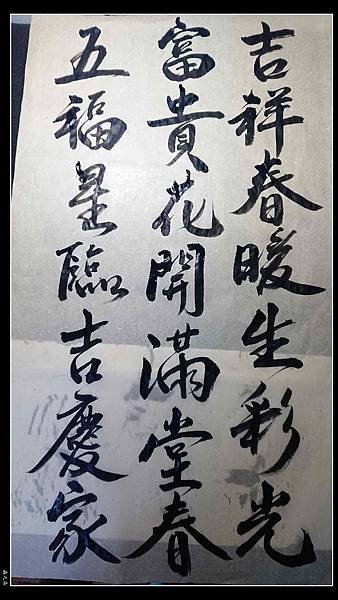 吉祥春暖生彩光
富貴花開滿堂春
五福星臨吉慶家